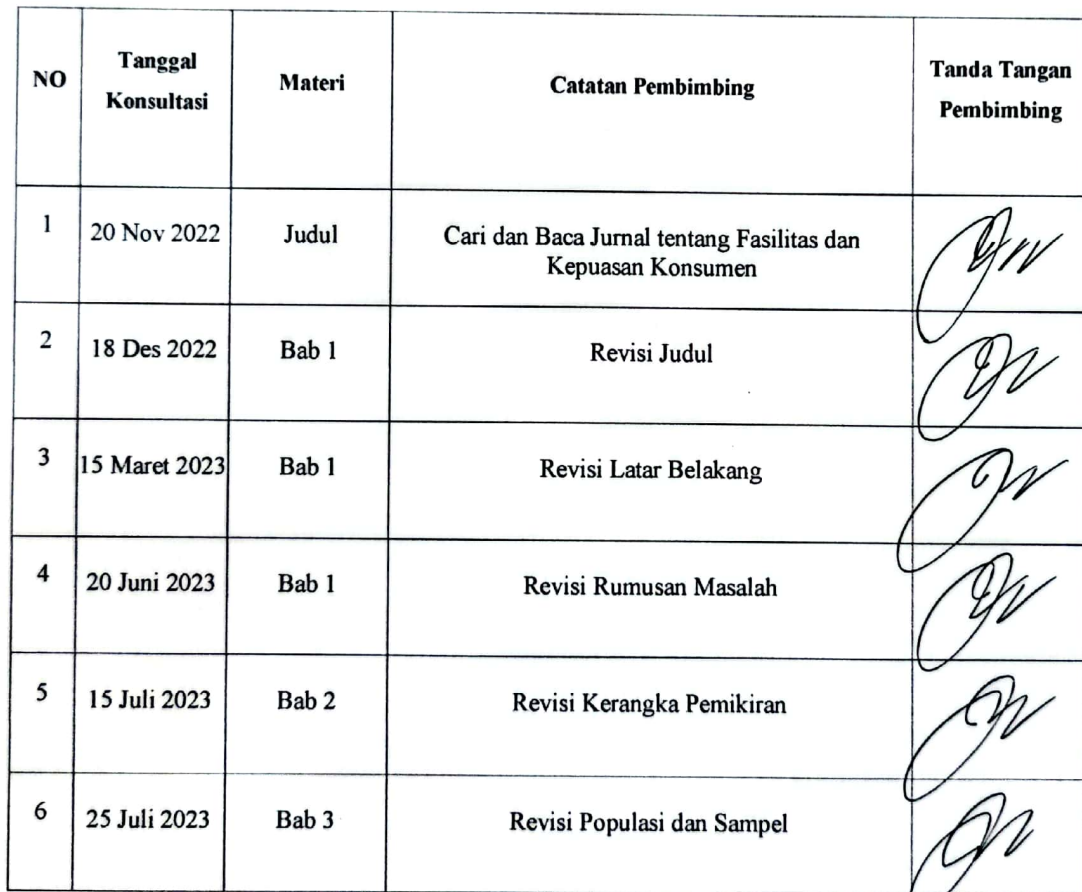 NO
Tanggal Konsultasi
Materi
Catatan Pembimbing
Tanda Tangan Pembimbing
1
20 Nov 2022
Judul
Cari dan Baca Jurnal tentang Fasilitas dan
Kepuasan Konsumen
2
18 Des 2022
Bab 1
Revisi Judul
3
15 Maret 2023
Bab 1
Revisi Latar Belakang
4
20 Juni 2023
Bab 1
Revisi Rumusan Masalah
5
15 Juli 2023
Bab 2
Revisi Kerangka Pemikiran
6
25 Juli 2023
Bab 3
Revisi Populasi dan Sampel